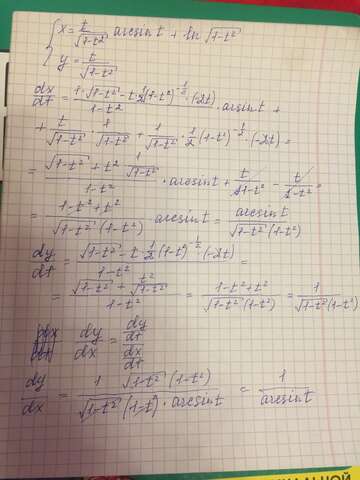 { x = t/√(1-t²) arcsin t + ln √(1-t²)
y = t/√(1-t²)
dx/dt = (1·√(1-t²) - t·1/2(1-t²)^(-1/2)·(-2t))/(1-t²) · arcsin t +
+ t/√(1-t²) · 1/√(1-t²) + 1/√(1-t²) · 1/2 (1-t²)^(-1/2) · (-2t) =
= (√(1-t²) + t² 1/√(1-t²))/(1-t²) · arcsin t + t/(1-t²) - t/(1-t²) =
= (1-t²+t²)/(√(1-t²) (1-t²)) · arcsin t = arcsin t/(√(1-t²) (1-t²))
dy/dt = (√(1-t²) - t·1/2(1-t²)^(-1/2)·(-2t))/(1-t²) =
= (√(1-t²) + t²/√(1-t²))/(1-t²) = (1-t²+t²)/(√(1-t²) (1-t²)) = 1/(√(1-t²) (1-t²))
dy/dx = (dy/dt)/(dx/dt)
dy/dx = 1/(√(1-t²) (1-t²)) · √(1-t²) (1-t²)/arcsin t = 1/arcsin t